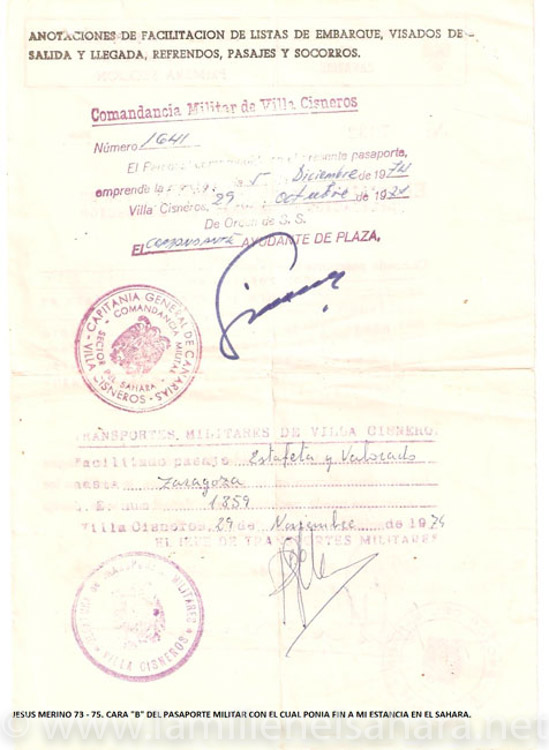 ANOTACIONES DE FACILITACION DE LISTAS DE EMBARQUE, VISADOS DE
SALIDA Y LLEGADA, REFRENDOS, PASAJES Y SOCORROS.
Comandancia Militar de Villa Cisneros
Número 1641
El presente pasaporte,
emprende la 5 Diciembre de 1974
Villa Cisneros, 29 octubre de 1974
De Orden de S. S.
El COMANDANTE AYUDANTE DE PLAZA,
CAPITANIA GENERAL DE CANARIAS
COMANDANCIA MILITAR
SECTOR DEL SAHARA
VILLA CISNEROS
TRANSPORTES MILITARES DE VILLA CISNERO
Facilitado pasaje Estafeta y Valorado
Zaragoza
1859
Villa Cisneros, 29 de Noviembre de 1974
EL JEFE DE TRANSPORTES MILITARES
JEFATURA DE TRANSPORTES MILITARES
VILLA CISNEROS
JESUS MERINO 73 - 75. CARA "B" DEL PASAPORTE MILITAR CON EL CUAL PONIA FIN A MI ESTANCIA EN EL SAHARA.
© www.lamilienelsahara.net